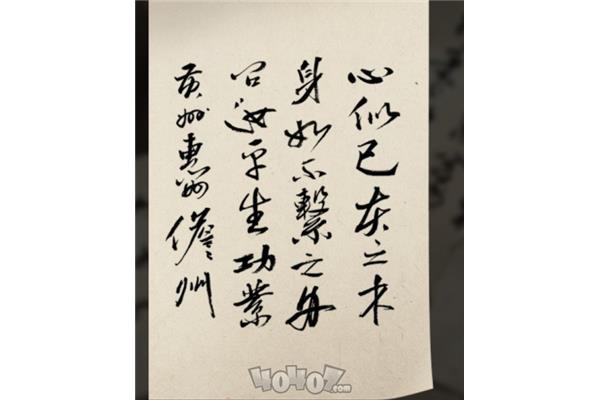 心似已灰之木
身如不繫之舟
问汝平生功業
黄州惠州儋州
40407.com